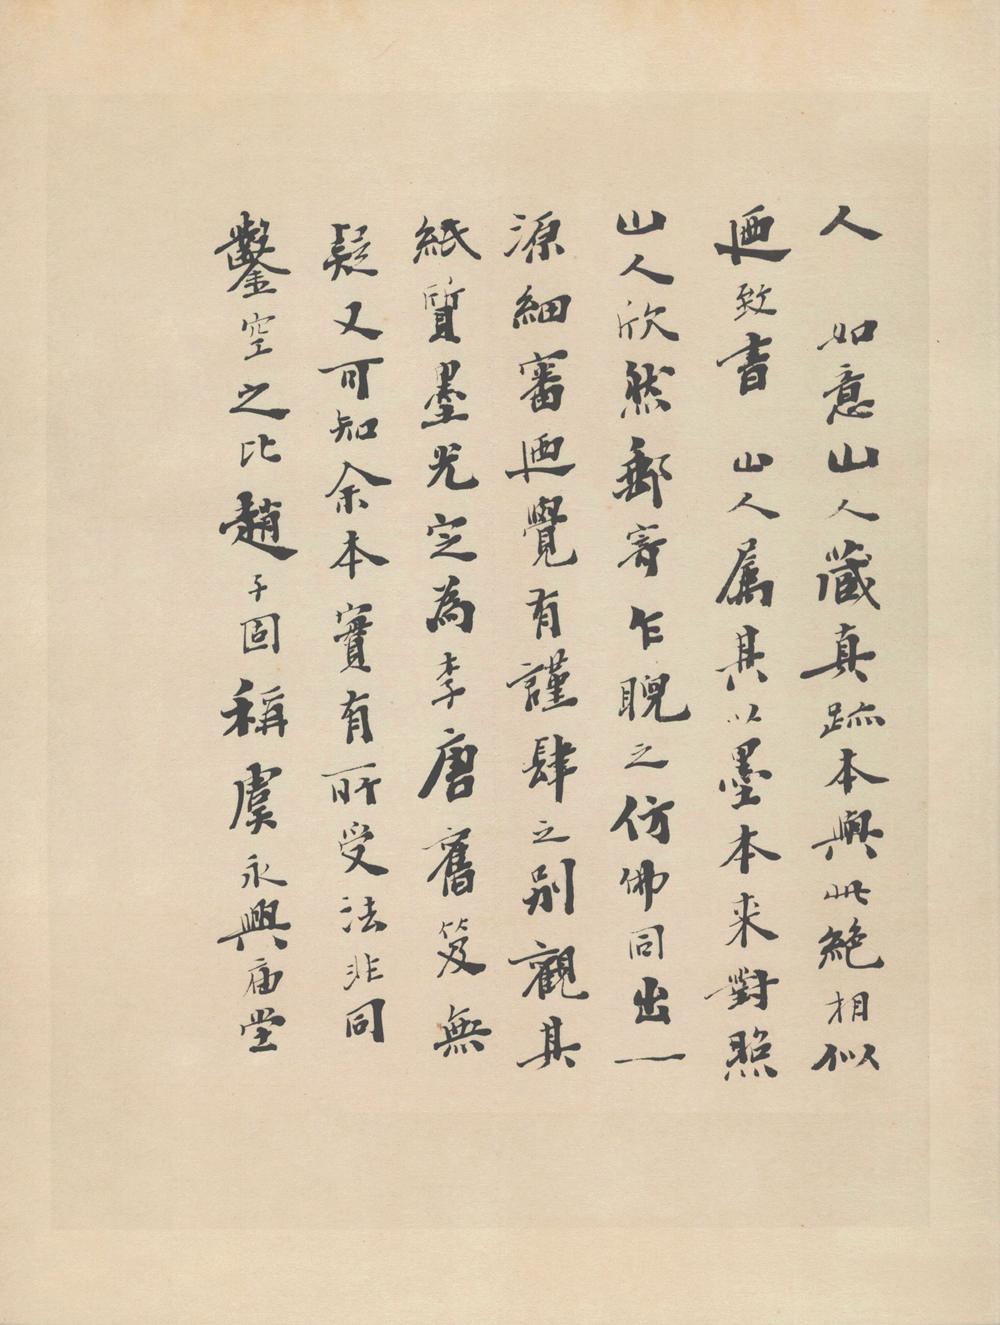 人　如意山人藏真跡本與此絕相似
迺致書　山人屬其以墨本來對照
山人欣然郵寄乍睨之仿佛同出一
源細審迺覺有謹肆之別觀其
紙質墨光定為李唐舊笈無
疑又可知余本實有所受法非同
鑿空之比趙子固稱虞永興庙堂